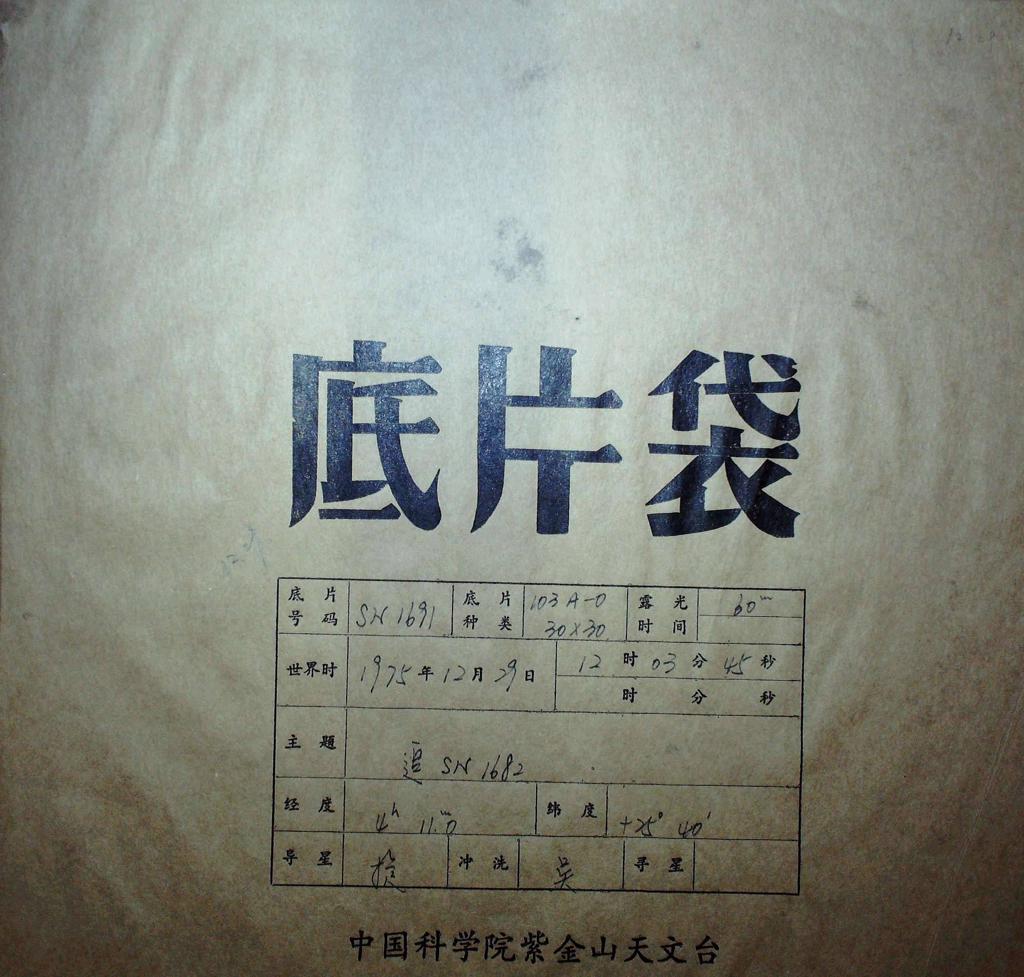 底片袋
底片号码 SN 1691 底片种类 103A-O 30×30 露光时间 60ᵐ
世界时 1975年12月29日 12时03分45秒
时 分 秒
主题 追 SN 1682
经度 4ʰ 11.ᵐ0 纬度 +25° 40′
导星 冲洗 吴 寻星
中国科学院紫金山天文台